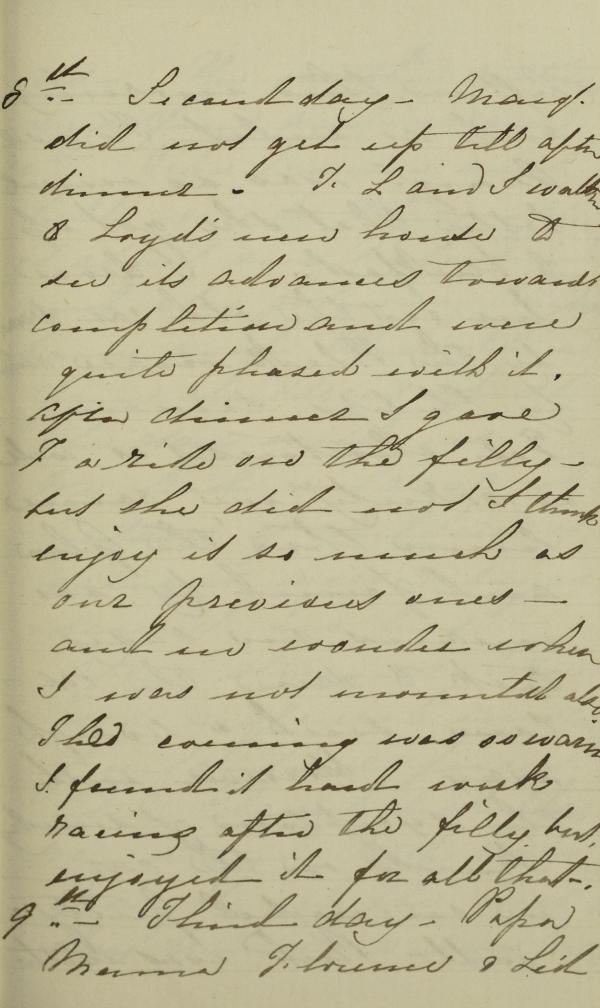 8th Second day - Marg.
did not get up till after
dinner - F. L and I walked
& Loyd's new house to
see its advances towards
completion and were
quite pleased with it.
After dinner I gave
F a ride on the filly -
but she did not I think
enjoy it so much as
our previous ones -
and no wonder when
I was not mounted also.
The evening was so warm
I found it hard work
racing after the filly but,
enjoyed it for all that.
9th - Third day - Papa
Mama Florence & Lid